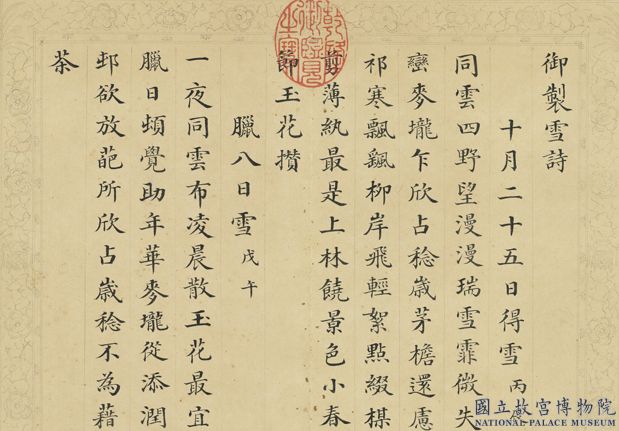 御製雪詩
十月二十五日得雪 丙
同雲四野望漫漫瑞雪霏微失
巒麥壠乍欣占稔歲茅檐還慮
祁寒飄飖柳岸飛輕絮點綴楳
剪薄紈最是上林饒景色小春
節玉花攢
臘八日雪 戊午
一夜同雲布凌晨散玉花最宜
臘日頓覺助年華麥壠從添潤
邨欲放葩所欣占歲稔不為藉
茶
乾隆御覽之寶
國立故宮博物院
NATIONAL PALACE MUSEUM